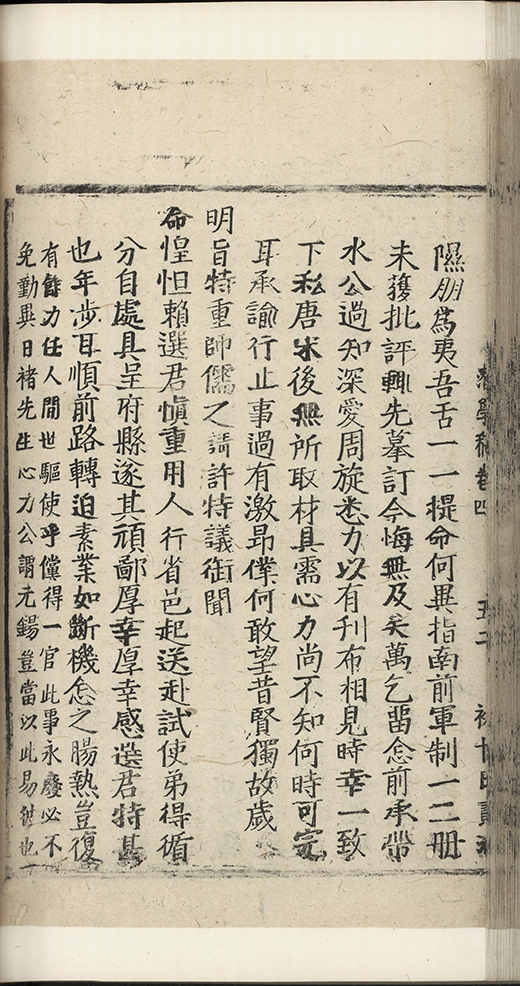 隰朋為夷吾舌一一提命何異指南前軍制一二冊
未獲批評輒先摹訂今悔無及矣萬乞留念前承帶
水公過知深愛周旋悉力以有刊布相見時幸一致
下私唐宋後無所取材具需心力尚不知何時可完
耳承諭行止事過有激昂僕何敢望昔賢獨故歲
明旨特重師儒之請許特議銜聞
命惶怛賴選君慎重用人行省邑起送赴試使弟得循
分自處具呈府縣遂其頑鄙厚幸厚幸感選君特甚
也年涉耳順前路轉迫素業如斷機念之腸熱豈復
有餘力任人間世驅使乎儻得一官此事永廢必不
免勤異日褚先生心力公謂元鍚豈當以此易彼也
學稿卷四
五二